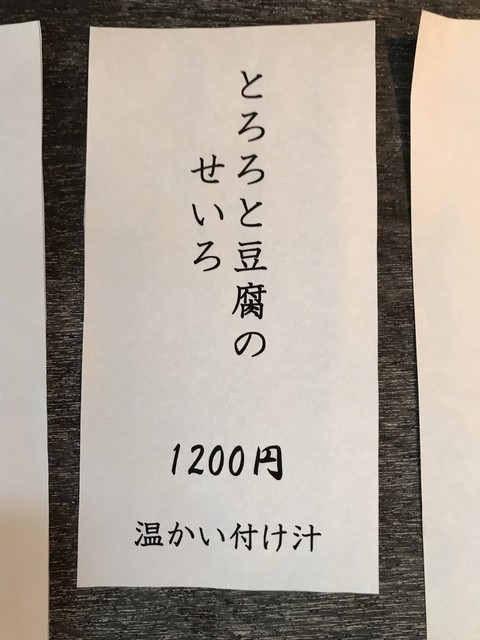 とろろと豆腐の
せいろ
1200円
温かい付け汁